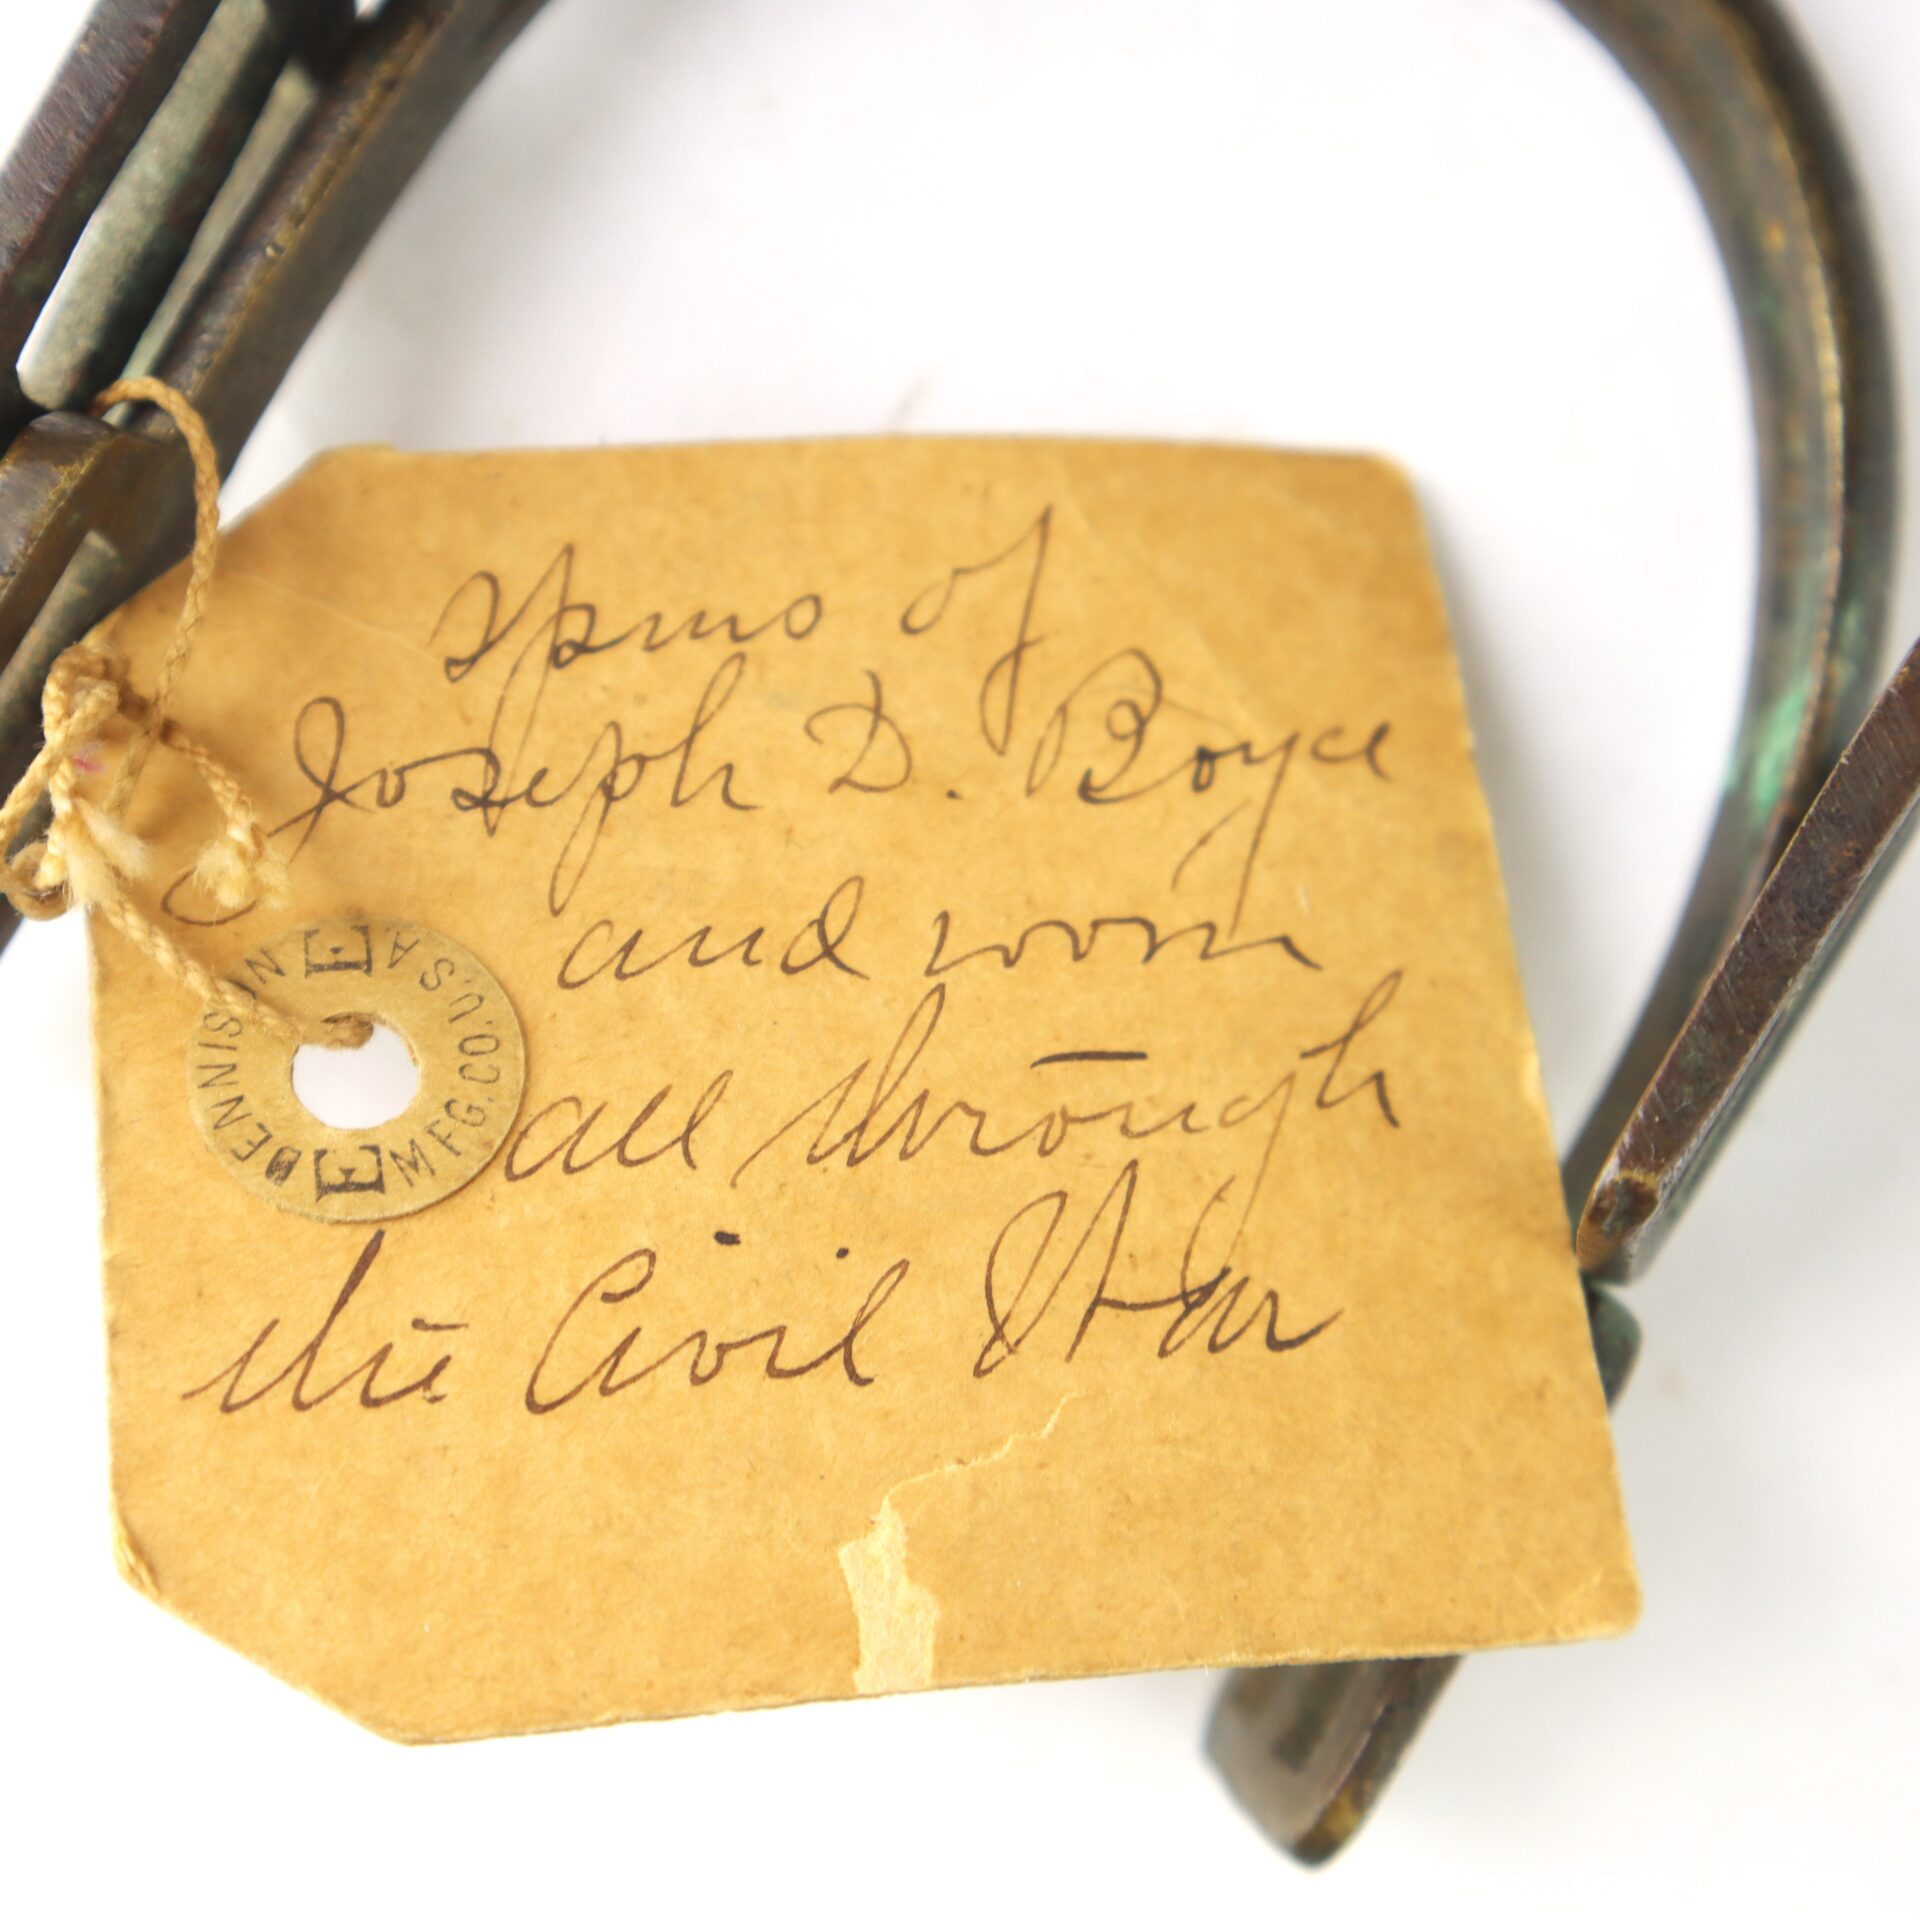 Spurs of
Joseph D. Boyce
and worn
all through
the Civil War
DENNISON MFG. CO. U.S.A.
E E